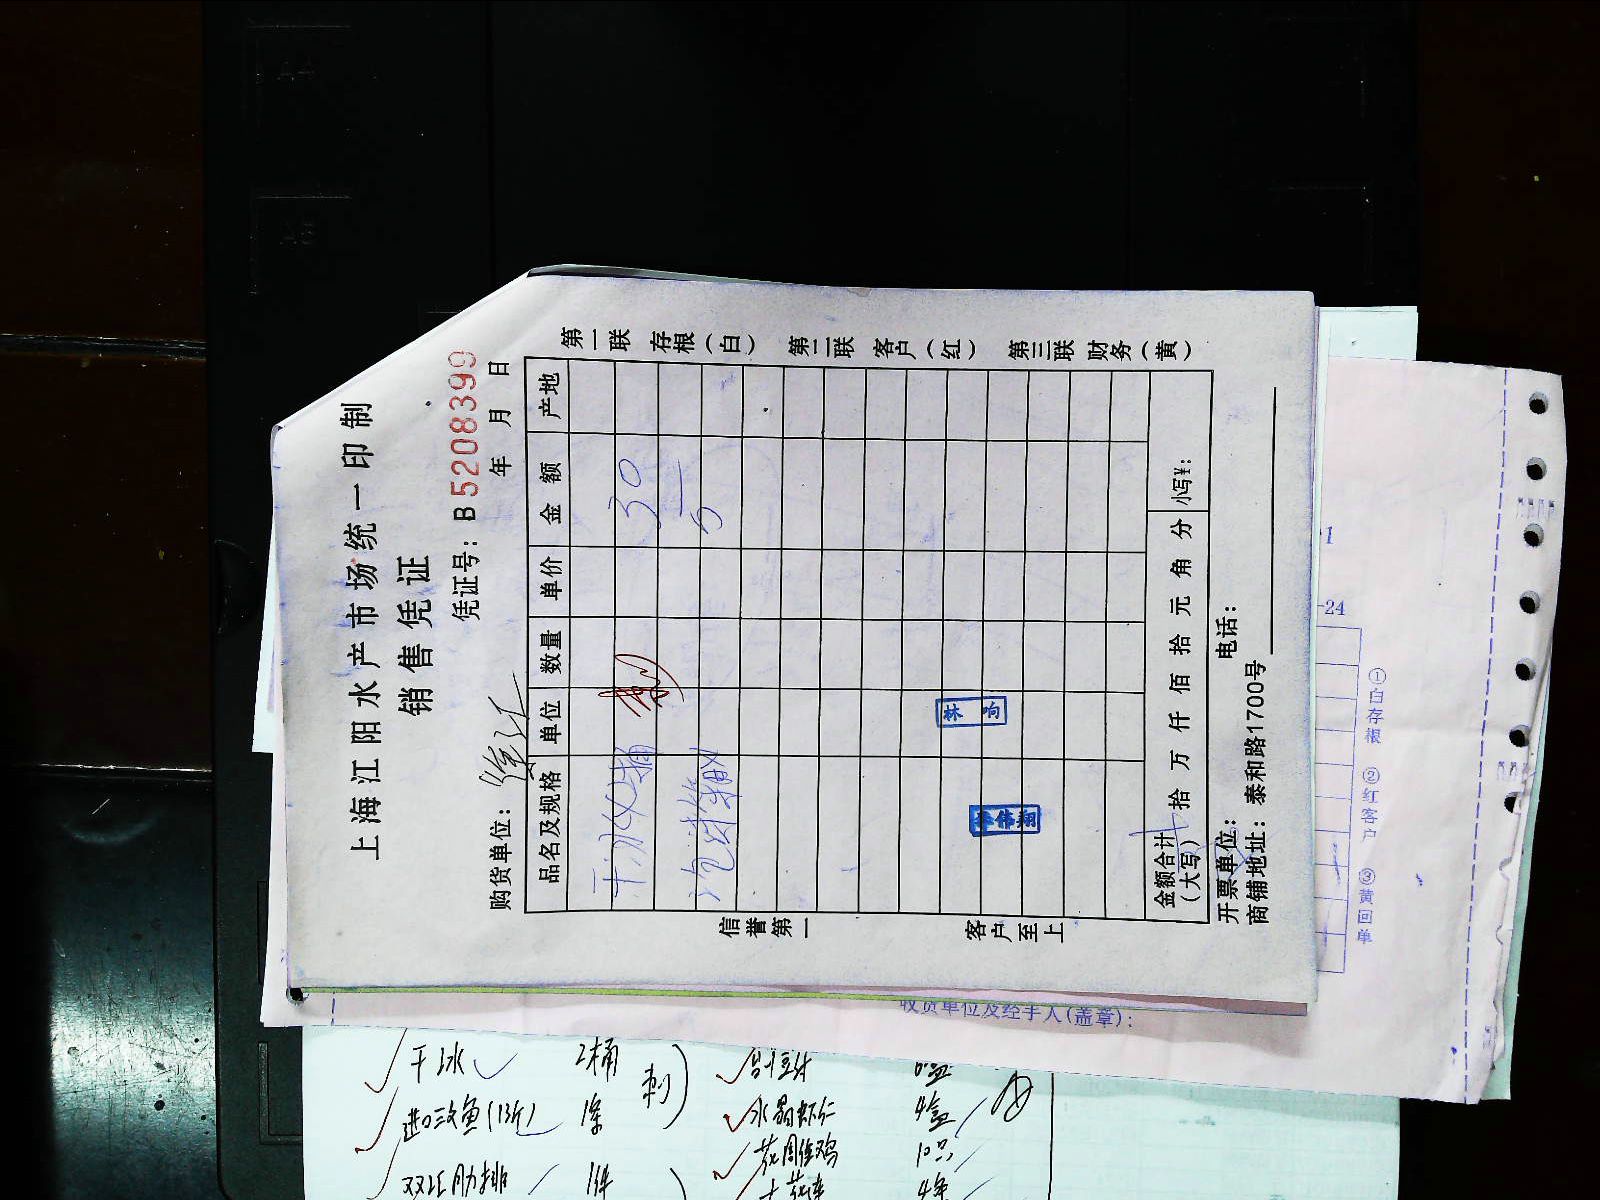 上海江阳水产市场统一印制
销售凭证
凭证号：B5208399
购货单位： 年 月 日
品名及规格 单位 数量 单价 金额 产地
干冰 30
泡沫箱 5
林响
伟翔
金额合计（大写） 拾 万 仟 佰 拾 元 角 分 小写¥：
开票单位： 电话：
商铺地址：泰和路1700号
信誉第一 客户至上
第一联 存根（白） 第二联 客户（红） 第三联 财务（黄）
-24
①白存根 ②红客户 ③黄回单
收货单位及经手人(盖章)：
干冰 2桶
进口三文鱼(13斤) 1条 刺
双汇肋排 1件
水晶虾仁 4盒
花雕醉鸡 10只
4条